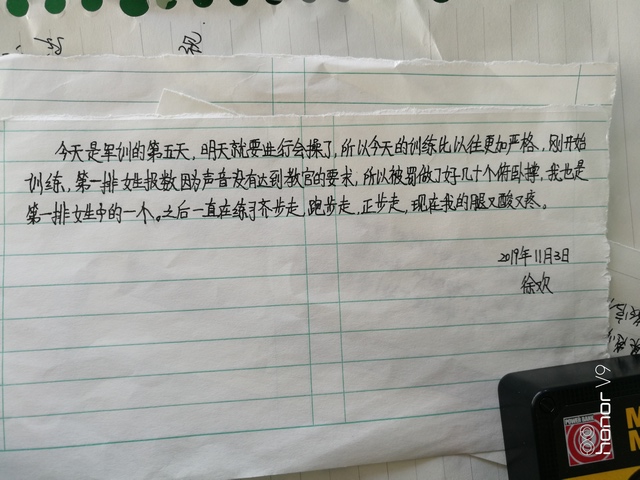 祝
今天是军训的第五天，明天就要进行会操了，所以今天的训练比以往更加严格，刚开始
训练，第一排女生报数因为声音没有达到教官的要求，所以被罚做了好几十个俯卧撑，我也是
第一排女生中的一个。之后一直在练习齐步走，跑步走，正步走，现在我的腿又酸又疼。
2019年11月3日
徐欢
honor V9
POWER BANK